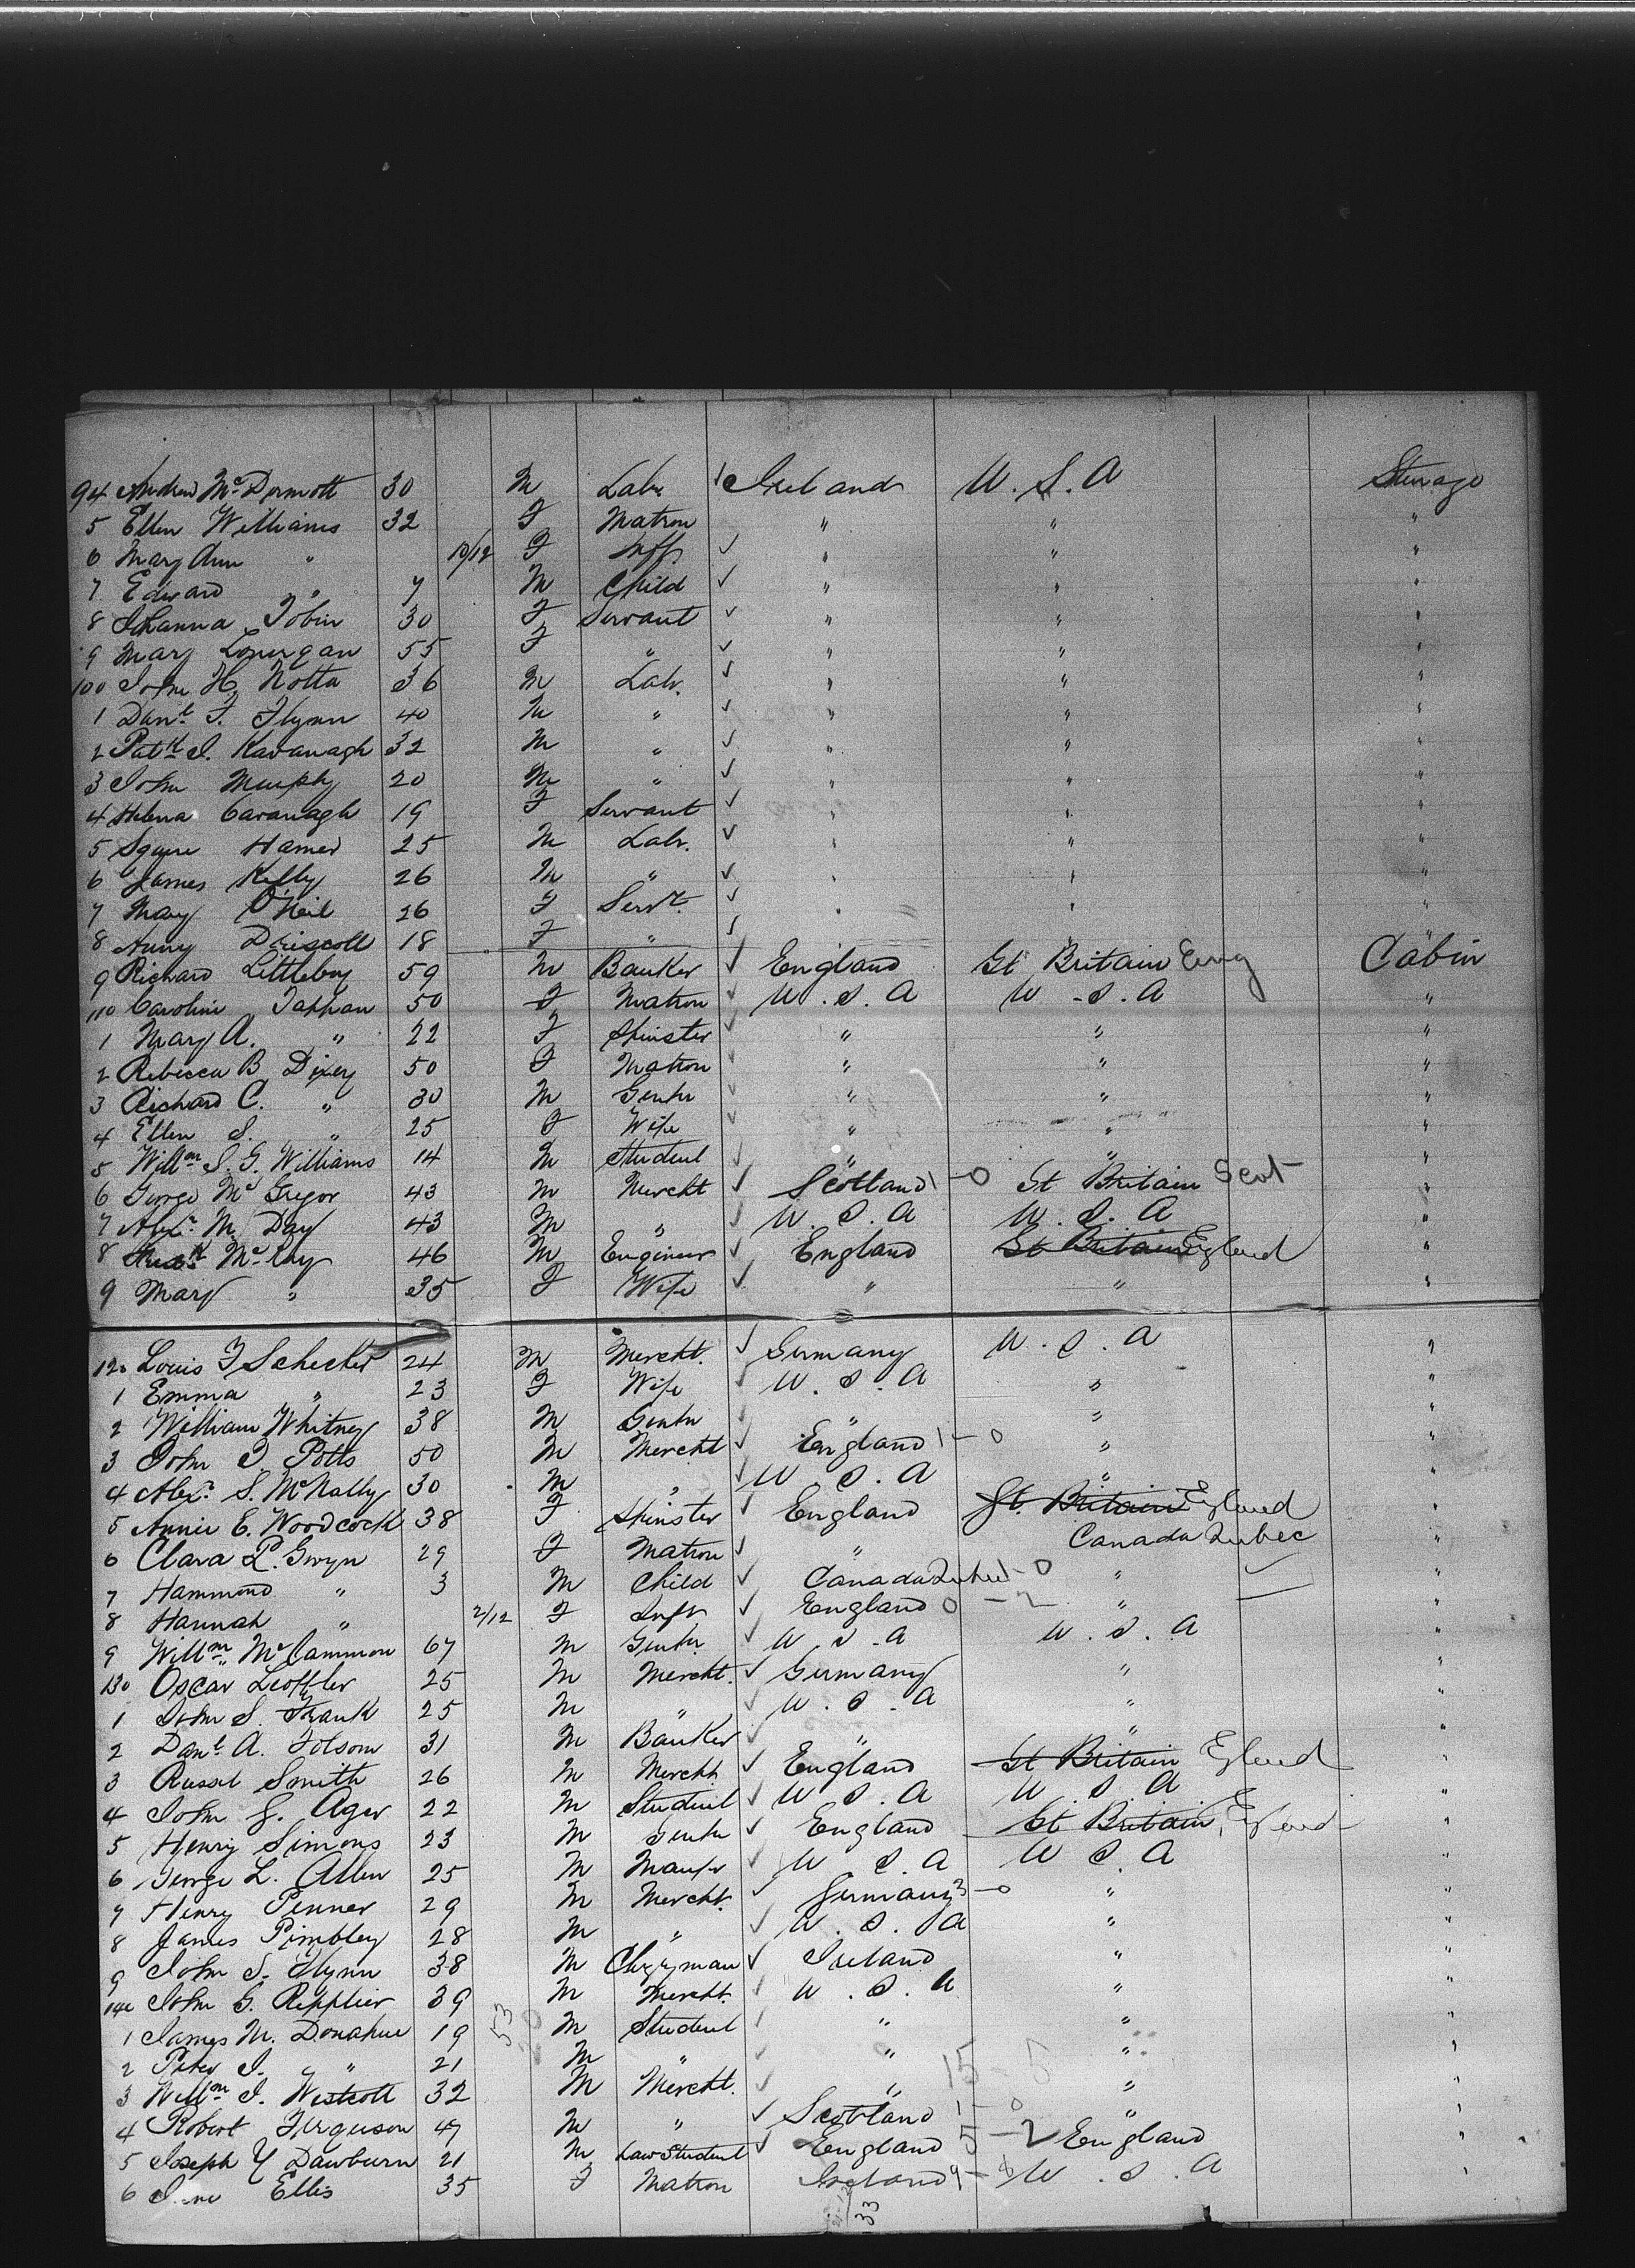 94 Andrew McDermott 30 M Labr Ireland U.S.A Steerage
5 Ellen Williams 32 F Matron " " "
6 Mary Ann " 10/12 F Inft " " "
7 Edward " 7 M Child " " "
8 Johanna Tobin 30 F Servant " " "
9 Mary Lonergan 55 F " " " "
100 John H. Notta 36 M Labr. " " "
1 Danl F. Flynn 40 M " " " "
2 Patk J. Kavanagh 32 M " " " "
3 John Murphy 20 M " " " "
4 Helena Cavanagh 19 F Servant " " "
5 Squire Hamer 25 M Labr. " " "
6 James Kelly 26 M " " " "
7 Mary O'Neil 26 F Servt. " " "
8 Anny Driscoll 18 F " " "
9 Richard Littleboy 59 M Banker England Gt Britain Eng Cabin
110 Caroline Tappan 50 F Matron U.S.A U.S.A "
1 Mary A. " 22 F Spinster " " "
2 Rebecca B Dixey 50 F Matron " " "
3 Richard C. " 30 M Gentn " " "
4 Ellen S. " 25 F Wife " " "
5 Willm S. G. Williams 14 M Student " " "
6 George McGregor 43 M Mercht Scotland 1-0 Gt Britain Scot "
7 Alexr M. Day 43 M " U.S.A U.S.A "
8 McKay 46 M Engineer England Gt Britain England "
9 Mary " 35 F Wife " " "
120 Louis F Schecker 24 M Mercht. Germany U.S.A "
1 Emma " 23 F Wife U.S.A " "
2 William Whitney 38 M Gentn " " "
3 John J Potts 50 M Mercht England 1-0 " "
4 Alexr S. McNally 30 M " U.S.A " "
5 Annie E. Woodcock 38 F Spinster England Gt. Britain England "
6 Clara P. Gwyn 29 F Matron " Canada Quebec "
7 Hammond " 3 M Child Canada Quebec -0 " "
8 Hannah " 2/12 F Inft England 0-2 " "
9 Willm McCammon 67 M Gentn U.S.A U.S.A "
130 Oscar Leoffler 25 M Mercht. Germany " "
1 John S. Frank 25 M " U.S.A " "
2 Danl A. Folsom 31 M Banker " " "
3 Russel Smith 26 M Mercht England Gt Britain England "
4 John G. Ager 22 M Student U.S.A U.S.A "
5 Henry Simons 23 M Gentn England Gt Britain England "
6 George L. Allen 25 M Manfr U.S.A U.S.A "
7 Henry Penner 29 M Mercht. Germany 3-0 " "
8 James Pimbley 28 M " U.S.A " "
9 John S. Flynn 38 M Clergyman Ireland " "
140 John G. Repplier 39 M Mercht. U.S.A " "
1 James M. Donahue 19 53 M Student " " "
2 Peter J. " 21 M " " " "
3 Willm J. Westcott 32 M Mercht. " 15 " "
4 Robert Ferguson 47 M " Scotland 1-0 " "
5 Joseph Y Dawburn 21 M Law Student England 5-2 England "
6 Jane Ellis 35 F Matron Ireland U.S.A "
33